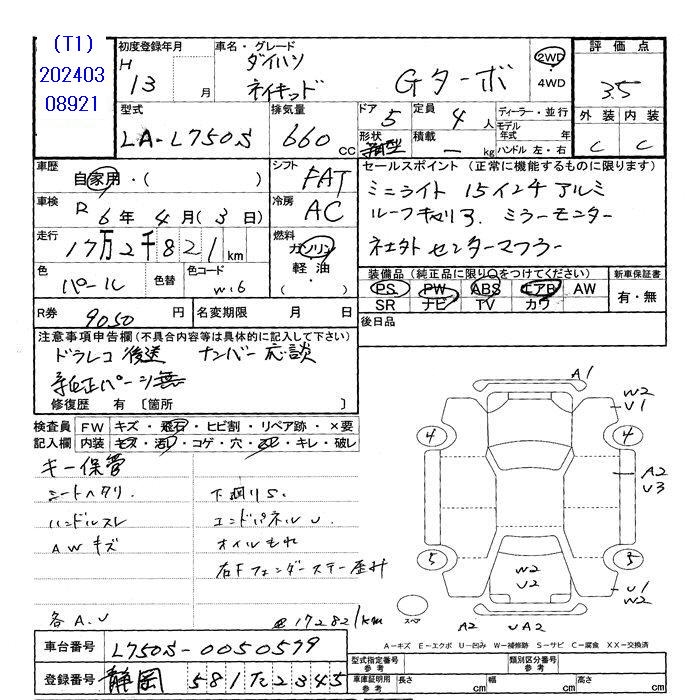 (T1)
202403
08921
初度登録年月
H
13 月
車名・グレード
ダイハツ
ネイキッド Gターボ
2WD
・
4WD
評価点
3.5
外装 内装
C C
型式
LA-L750S
排気量
660 cc
ドア 5
形状 箱型
定員 4 人
積載 - kg
ディーラー・並行
モデル
年式 年
ハンドル 左・右
車歴
自家用・( )
シフト
FAT
車検
R 6年 4月(3日)
冷房
AC
走行
17万2千821km
燃料
ガソリン
軽油・
( )
色
パール
色替
色コード
W16
R券 9050円
名変期限 月 日
セールスポイント(正常に機能するものに限ります)
ミニライト 15インチ アルミ
ルーフキャリア. ミラーモニター
センターマフラー
装備品(純正品に限り○をつけてください)
PS PW ABS エアB AW
SR ナビ TV カワ
新車保証書
有・無
後日品
注意事項申告欄(不具合内容等は具体的に記入して下さい)
ドラレコ 後送 ナンバー応談
純正パーツ無
修復歴 有〔箇所 〕
検査員 FW キズ・飛石・ヒビ割・リペア跡・×要
記入欄 内装 キズ・汚れ・コゲ・穴・・キレ・破レ
キー保管
シートヘタリ
ハンドルスレ
AWキズ
下回りS.
エンドパネルU
オイルもれ
右Fフェンダーステー歪み
各A.U
@172821km
A1
W2
U1
4 4
A2
U3
5 5
W2
U2
U1
W2
スペア
A2 UA2
A-キズ E-エクボ U-凹み W-補修跡 S-サビ C-腐食 XX-交換済
車台番号 L750S-0050579
登録番号 静岡 581 た 2345
型式指定番号
参考
類別区分番号
参考
車庫証明用
参考
長さ cm
幅 cm
高さ cm